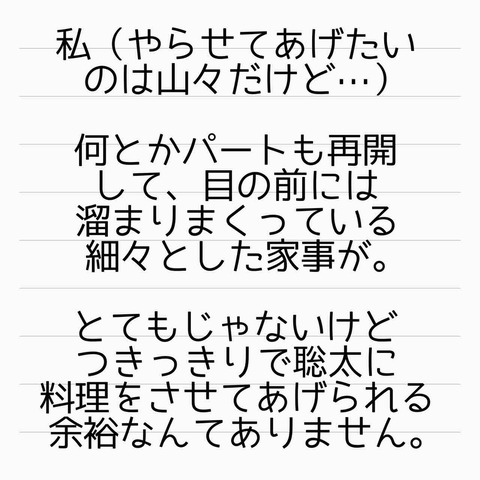 私（やらせてあげたい
のは山々だけど…）
何とかパートも再開
して、目の前には
溜まりまくっている
細々とした家事が。
とてもじゃないけど
つきっきりで聡太に
料理をさせてあげられる
余裕なんてありません。